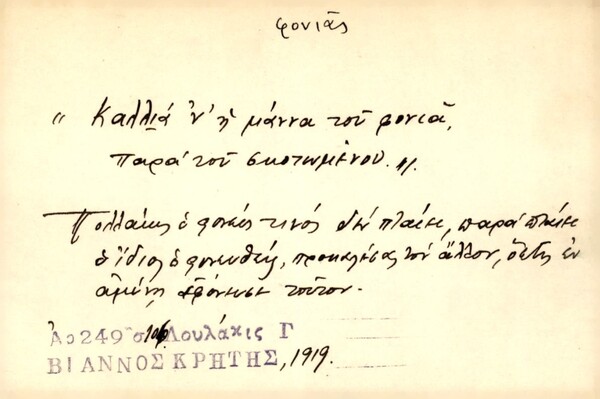 φονιᾶς
" Καλλιά 'ν' ἡ μάννα τοῦ φονιᾶ,
παρά τοῦ σκοτωμένου. "
Πολλάκις ὁ φονεύς τινός δέν πταίει, παρά πταίει
ὁ ἴδιος ὁ φονευθείς, προκαλέσας τόν ἄλλον, ὅστις ἐν
ἀμύνῃ ἐφόνευσε τοῦτον.
Ἀρ 249 σ 106 Δουλάκις Γ
ΒΙΑΝΝΟΣ ΚΡΗΤΗΣ, 1919.